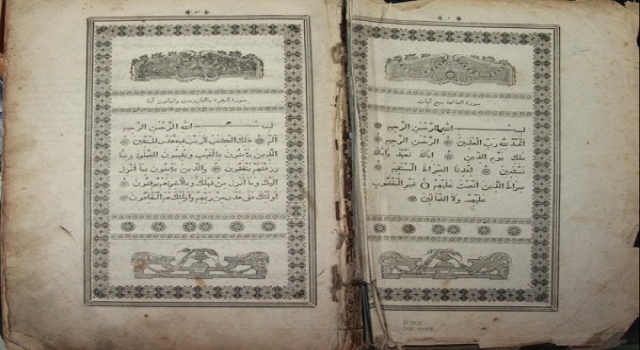 سورة الفاتحة سبع آيات
بسم الله الرحمن الرحيم
الحمد لله رب العلمين الرحمن الرحيم
ملك يوم الدين اياك نعبد واياك
نستعين اهدنا الصراط المستقيم
صراط الذين انعمت عليهم غير المغضوب
عليهم ولا الضالين
سورة البقرة وثمانون آية
بسم الله الرحمن الرحيم
الم ذلك الكتب لا ريب فيه هدى للمتقين
الذين يؤمنون بالغيب ويقيمون الصلوة ومما
رزقنهم ينفقون والذين يؤمنون بما انزل
اليك وما انزل من قبلك وبالآخرة هم يوقنون
اولئك على هدى من ربهم واولئك هم المفلحون